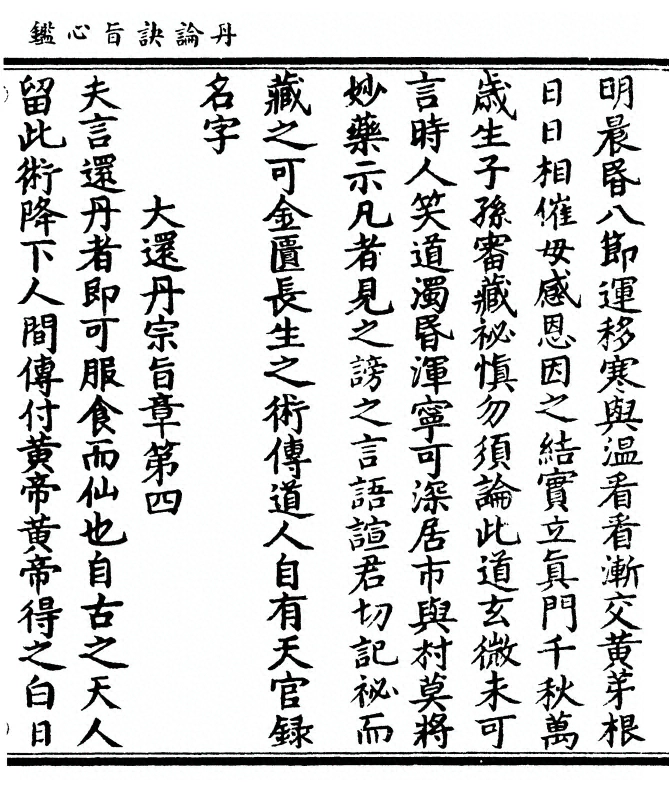 丹論訣旨心鑑
明晨昏八節運移寒與溫看看漸交黃芽根
日日相催母感恩因之結實立眞門千秋萬
歲生子孫審藏祕愼勿須論此道玄微未可
言時人笑道濁昏渾寧可深居市與村莫將
妙藥示凡者見之謗之言語諠君切記祕而
藏之可金匱長生之術傳道人自有天官録
名字
大還丹宗旨章第四
夫言還丹者即可服食而仙也自古之天人
留此術降下人間傳付黃帝黃帝得之白日